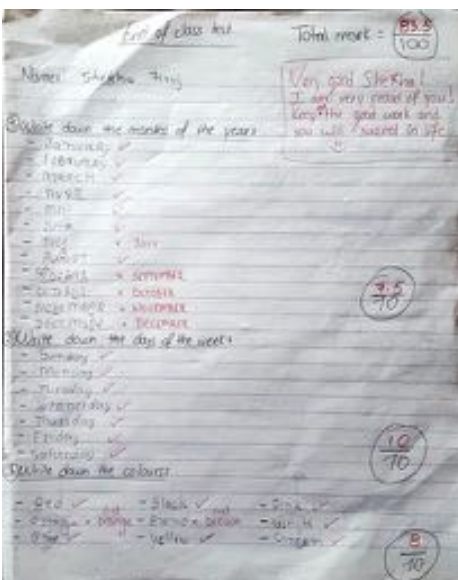 End of class test
Total mark = 83.5
100
Name:
Very good Shekina!
I am very proud of you!
Keep the good work and
you will succeed in life
Write down the months of the years
- January
- February
- March
- May
- June
- July
- August
× SEPTEMBER
× October
× NOVEMBER
× DECEMBER
7.5
10
Write down the days of the weeks
- Sunday
- Monday
- Tuesday
- Thursday
- Friday
- Saturday
10
10
Write down the colours
- Red - Black - Pink
× orange × brown - White
- Yellow - Green
8
10